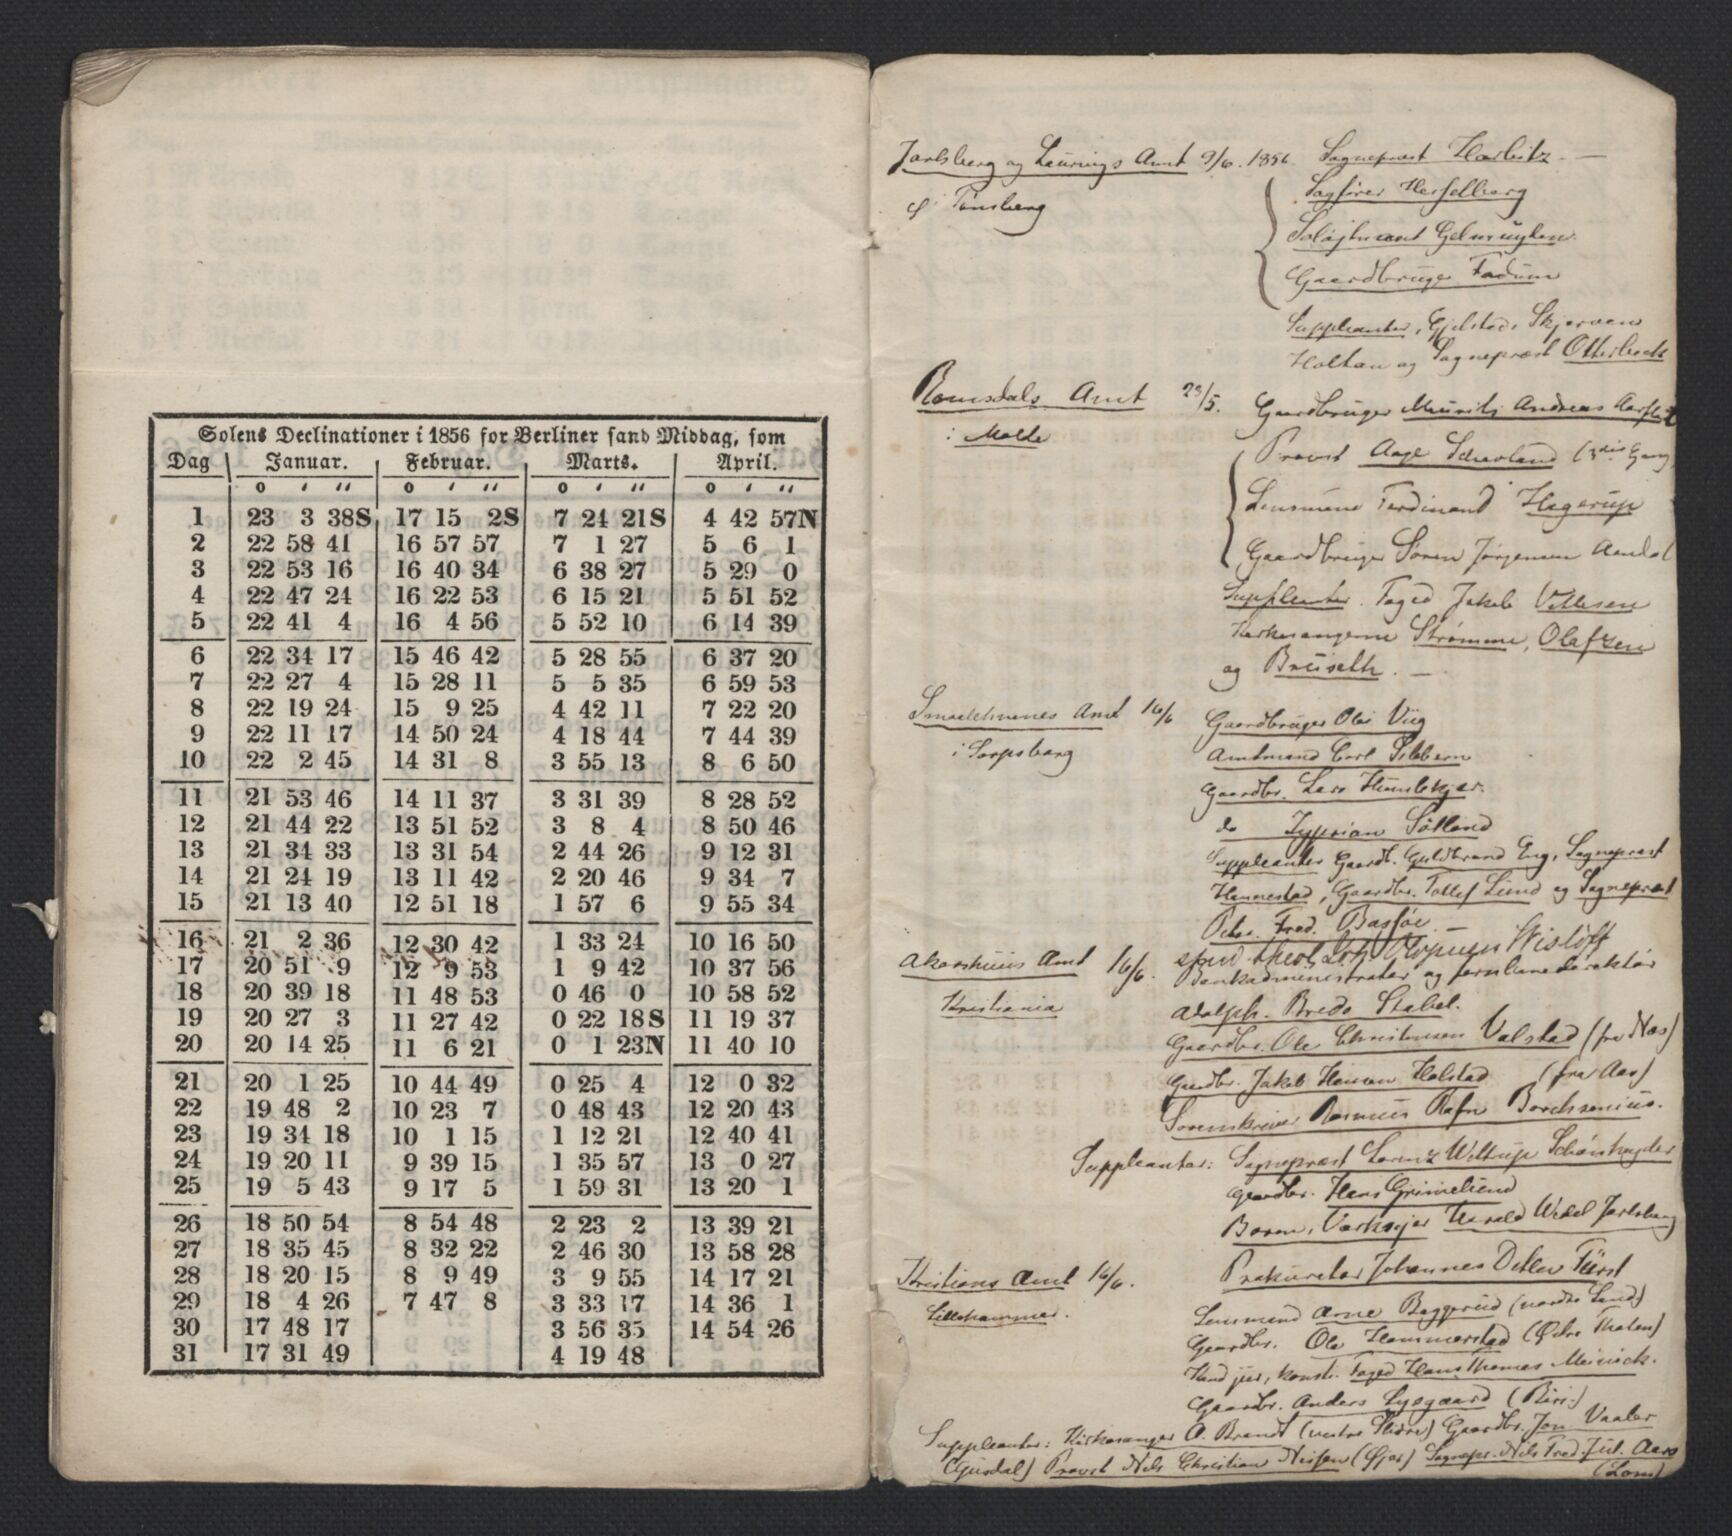 Solens Declinationer i 1856 for Berliner sand Middag, som
Dag Januar. Februar. Marts. April.
o ‘ “ o ‘ “ o ‘ “ o ‘ “
1 23 3 38S 17 15 2S 7 24 21S 4 42 57N
2 22 58 41 16 57 57 7 1 27 5 6 1
3 22 53 16 16 40 34 6 38 27 5 29 0
4 22 47 24 16 22 53 6 15 21 5 51 52
5 22 41 4 16 4 56 5 52 10 6 14 39
6 22 34 17 15 46 42 5 28 55 6 37 20
7 22 27 4 15 28 11 5 5 35 6 59 53
8 22 19 24 15 9 25 4 42 11 7 22 20
9 22 11 17 14 50 24 4 18 44 7 44 39
10 22 2 45 14 31 8 3 55 13 8 6 50
11 21 53 46 14 11 37 3 31 39 8 28 52
12 21 44 22 13 51 52 3 8 4 8 50 46
13 21 34 33 13 31 54 2 44 26 9 12 31
14 21 24 19 13 11 42 2 20 46 9 34 7
15 21 13 40 12 51 18 1 57 6 9 55 34
16 21 2 36 12 30 42 1 33 24 10 16 50
17 20 51 9 12 9 53 1 9 42 10 37 56
18 20 39 18 11 48 53 0 46 0 10 58 52
19 20 27 3 11 27 42 0 22 18S 11 19 37
20 20 14 25 11 6 21 0 1 23N 11 40 10
21 20 1 25 10 44 49 0 25 4 12 0 32
22 19 48 2 10 23 7 0 48 43 12 20 43
23 19 34 18 10 1 15 1 12 21 12 40 41
24 19 20 11 9 39 15 1 35 57 13 0 27
25 19 5 43 9 17 5 1 59 31 13 20 1
26 18 50 54 8 54 48 2 23 2 13 39 21
27 18 35 45 8 32 22 2 46 30 13 58 28
28 18 20 15 8 9 49 3 9 55 14 17 21
29 18 4 26 7 47 8 3 33 17 14 36 1
30 17 48 17 3 56 35 14 54 26
31 17 31 49 4 19 48
Jarlsberg og Laurvigs Amt 9/6. 1856. Sognepræst Harbitz. —
i Tønsberg
Sagfører Hesselberg
Gaardbruger Fadum
Suppleanter, Gjelstad, Skjerven
Holtan og Sognepræst Otterbech
Romsdals Amt 23/5. Gaardbruger Mauritz Andreas
i Molde
Provst Aage Schavland
Lensmand Ferdinand Hagerup
Gaardbruger Søren Jørgensen Aandal
Suppleanter. Foged Jakob Vettesen
Kirkesangerne Strømme, Olafzen
og Brüseth. —
Smaalehnenes Amt 16/6 Gaardbruger Olai Viig
i Sarpsborg
Amtmand Carl Sibbern
Gaardbr. Lars Hunskjær.
do Zyprian Sølland
Suppleanter Gaardb. Guldbrand Eng, Sognepræst
Hannestad, Gaardbr. Tollef Lund og Sognepræst
Peter Fred. Bassøe.
Akershuus Amt 16/6. Bankadministrator og
Kristiania
Adolph. Bredo Stabel.
Gaardbr. Ole Christensen Valstad (fra Næs)
Gaardbr. Jakob Hansen Holstad (fra Aas)
Sorenskriver Rasmus Rafn Borchsenius.
Suppleanter: Sognepræst Lorenz Wittrup Schønheyder
Gaardbr. Hans Grimelund
Baron, Værkseier Harald Wedel Jarlsberg
Prokurator Johannes Detlev Fürst
Kristians Amt 16/6.
Lillehammer.
Lensmand Arne Baggerud (nordre Land)
Gaardbr. Ole Hammerstad (Østre Thoten)
Kand jur, konst. Foged Hans Thomas Meinich.
Gaardbr. Anders Lysgaard (Biri)
Suppleanter: Kirkesanger O. Brandt (vestre Slidre) Gaardbr. Jon Vaaler
(Gusdal) Provst Nils Christian Nissen (Øjer) Sognepr. Nils Fred. Jul. Aars
(Lom)